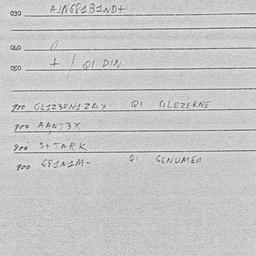 030 AJNG81B1ND+
040 0
050 + / QI DIN
900 GL1Z3RN1ZAY QI GLEZERNE
900 AANT3X
900 S+TARK
900 G81N1M- QI GENUMEN